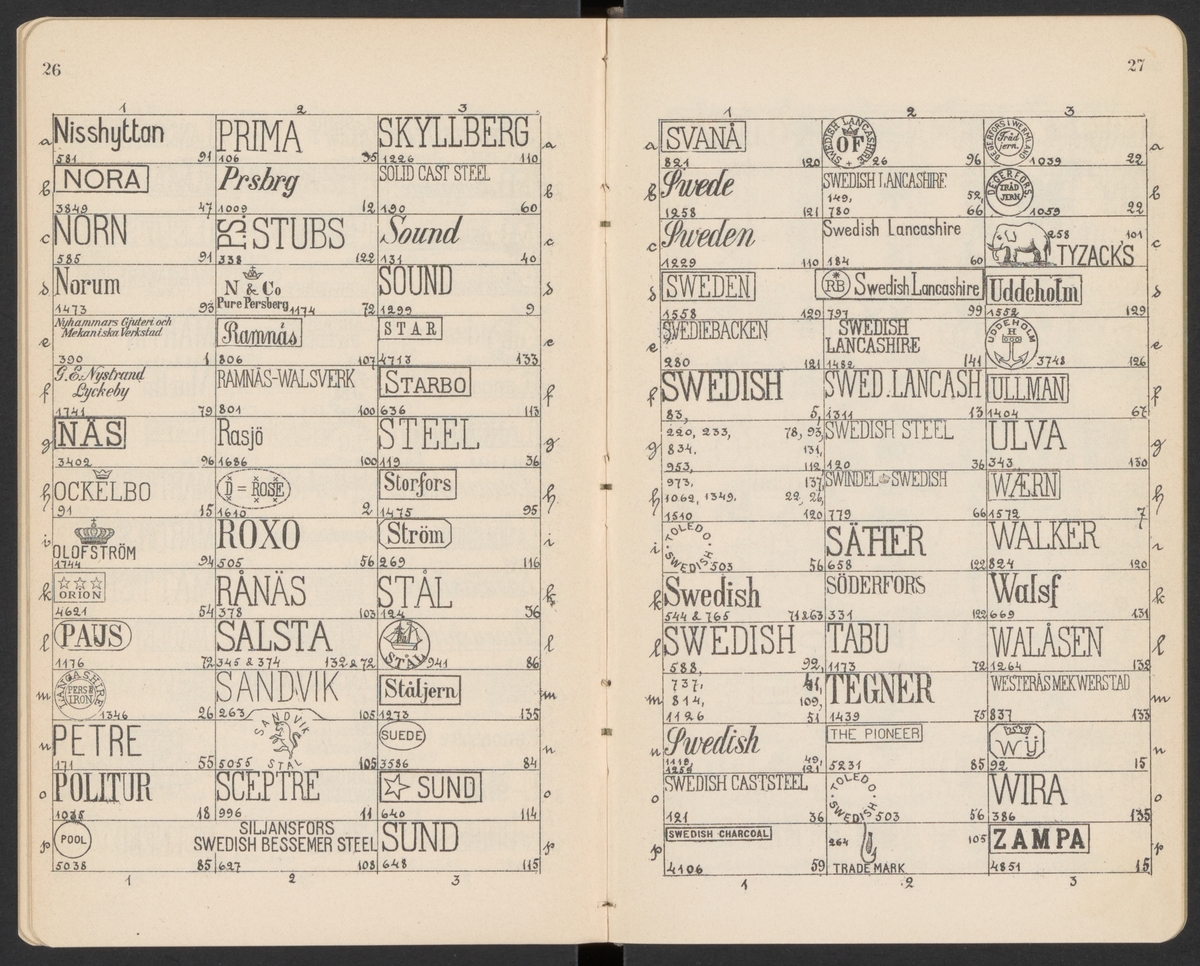 26
1 2 3
a Nisshyttan PRIMA SKYLLBERG a
581 91 106 35 1226 110
b NORA Prsbrg SOLID CAST STEEL b
3849 47 1009 12 190 60
c NORN P.S. STUBS Sound c
585 91 338 122 131 40
d Norum N & Co SOUND d
Pure Persberg
1473 93 1174 72 1299 9
e Nyhammars Gjuteri och Ramnäs STAR e
Mekaniska Verkstad
390 1 806 107 4713 133
f G.E. Nystrand RAMNÄS-WALSVERK STARBO f
Lyckeby
1741 79 801 100 636 113
g NÄS Rasjö STEEL g
3402 96 1686 100 119 36
h OCKELBO D = ROSE Storfors h
91 15 1610 2 1475 95
i OLOFSTRÖM ROXO Ström i
1744 94 505 56 269 116
k ORION RÅNÄS STÅL k
4621 54 378 103 124 36
l PAUS SALSTA STÅL l
1176 72 345 & 374 132 & 72 941 86
m LANCASHIRE SANDVIK Ståljern m
PERS IRON
1346 26 263 105 1273 135
n PETRE SANDVIK STÅL SUEDE n
171 55 5055 105 3586 84
o POLITUR SCEPTRE SUND o
1035 18 996 11 640 114
p POOL SILJANSFORS SUND p
SWEDISH BESSEMER STEEL
5038 85 627 108 648 115
1 2 3
27
1 2 3
a SVANÅ SWEDISH LANCASHIRE ÖF DEGERFORS I WERMLAND Tråd jern. a
821 120 26 96 1039 22
b Swede SWEDISH LANCASHIRE DEGERFORS TRÅD JERN b
149, 52,
1258 121 780 66 1059 22
c Sweden Swedish Lancashire 258 101 TYZACK'S c
1229 110 184 60
d SWEDEN RB Swedish Lancashire Uddeholm d
1558 129 797 99 1552 129
e SVEDIEBACKEN SWEDISH UDDEHOLM H e
LANCASHIRE
280 121 1482 141 3748 126
f SWEDISH SWED. LANCASH ULLMAN f
83, 5, 1311 13 1404 67
g 220, 233, 78, 93, SWEDISH STEEL ULVA g
834. 131,
953, 112 120 36 343 130
h 973, 137, SWINDEL SWEDISH WÆRN h
1062, 1349. 22, 26,
1510 120 779 66 1572 7
i TOLEDO SWEDISH SÄTHER WALKER i
503 56 658 122 824 120
k Swedish SÖDERFORS Walsf k
544 & 765 71 & 63 331 122 669 131
l SWEDISH TABU WALÅSEN l
588, 92, 1173 72 1264 132
m 737, 41, TEGNER WESTERÅS MEK WERSTAD m
814, 109,
1126 51 1439 75 837 133
n Swedish THE PIONEER WIJ n
1119, 49,
1255 121 5231 85 92 15
o SWEDISH CASTSTEEL TOLEDO SWEDISH WIRA o
121 36 503 56 386 135
p SWEDISH CHARCOAL 264 105 ZAMPA p
4106 59 TRADE MARK 4851 15
1 2 3